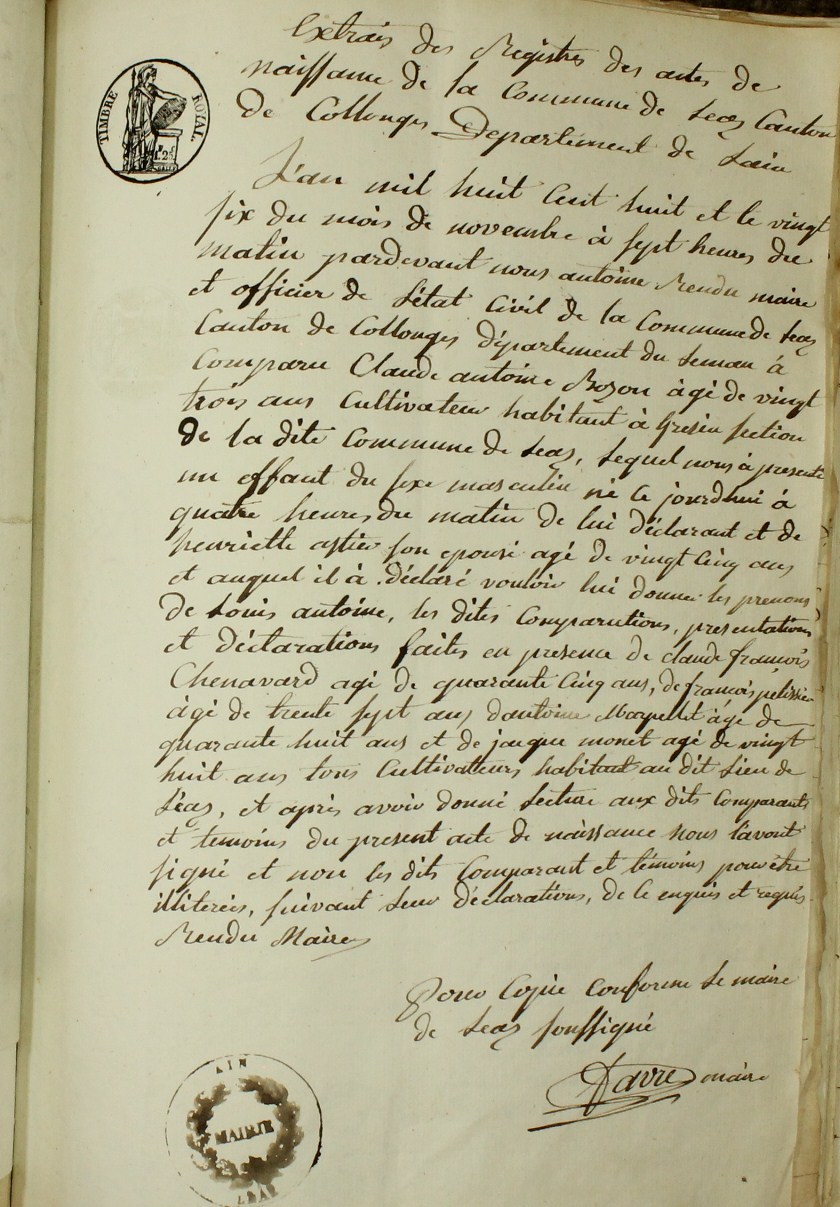 TIMBRE ROYAL.
Extrais des Registres des actes de
naissance de la Commune de Leaz Canton
de Collonges Departement de Lain
L'an mil huit cent huit et le vingt
six du mois de novembre à sept heures du
matin pardevant nous antoine Rendu maire
et officier de l'état Civil de la Commune de Leaz
Canton de Collonges département du Leman à
Comparu Claude antoine Bozon âgé de vingt
trois ans Cultivateur habitant à Gresin section
de la dite Commune de Leaz, Lequel nous à presenté
un effant du sexe masculin né ce jourdhui à
quatre heures du matin de lui déclarant et de
henriette astier son epouse agé de vingt cinq ans
et auquel il à déclaré vouloir lui donner les prenoms
de Louis antoine, les dites Comparutions, presentations
et déclarations faites en presence de claude françois
Chenavard agé de quarante cinq ans, de françois pelissier
âgé de trente sept ans dantoine âgé de
quarante huit ans et de jacque monet agé de vingt
huit ans tous Cultivateurs habitant au dit Lieu de
Léaz, et après avoir donné Lecture aux dits Comparants
et temoins du present acte de naissance nous l'avont
signé et non les dits Comparant et témoins pour être
illiterés, suivant leur déclarations, de ce enquis et requis
Rendu Maire
Pour Copie conforme Le maire
de Leaz soussigné
Favre maire
AIN
MAIRIE
LEAZ